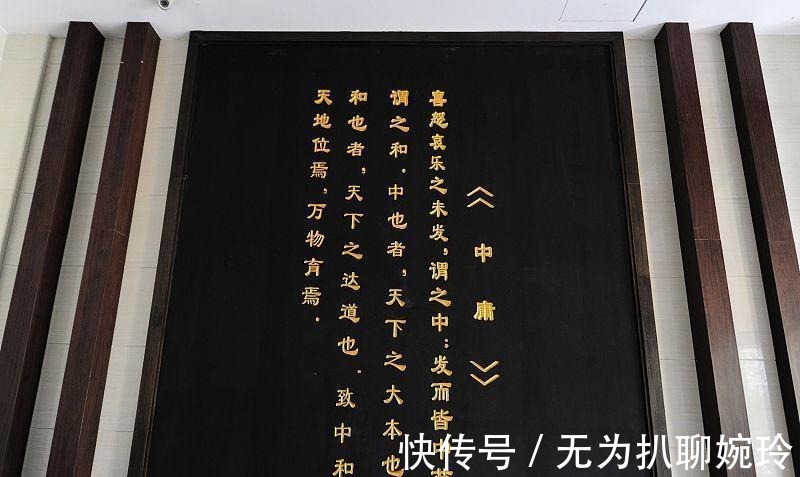 《中庸》
喜怒哀乐之未发，谓之中；发而皆中
谓之和．中也者，天下之大本也
和也者，天下之达道也．致中和
天地位焉，万物育焉．
快传号／无为扒聊婉玲